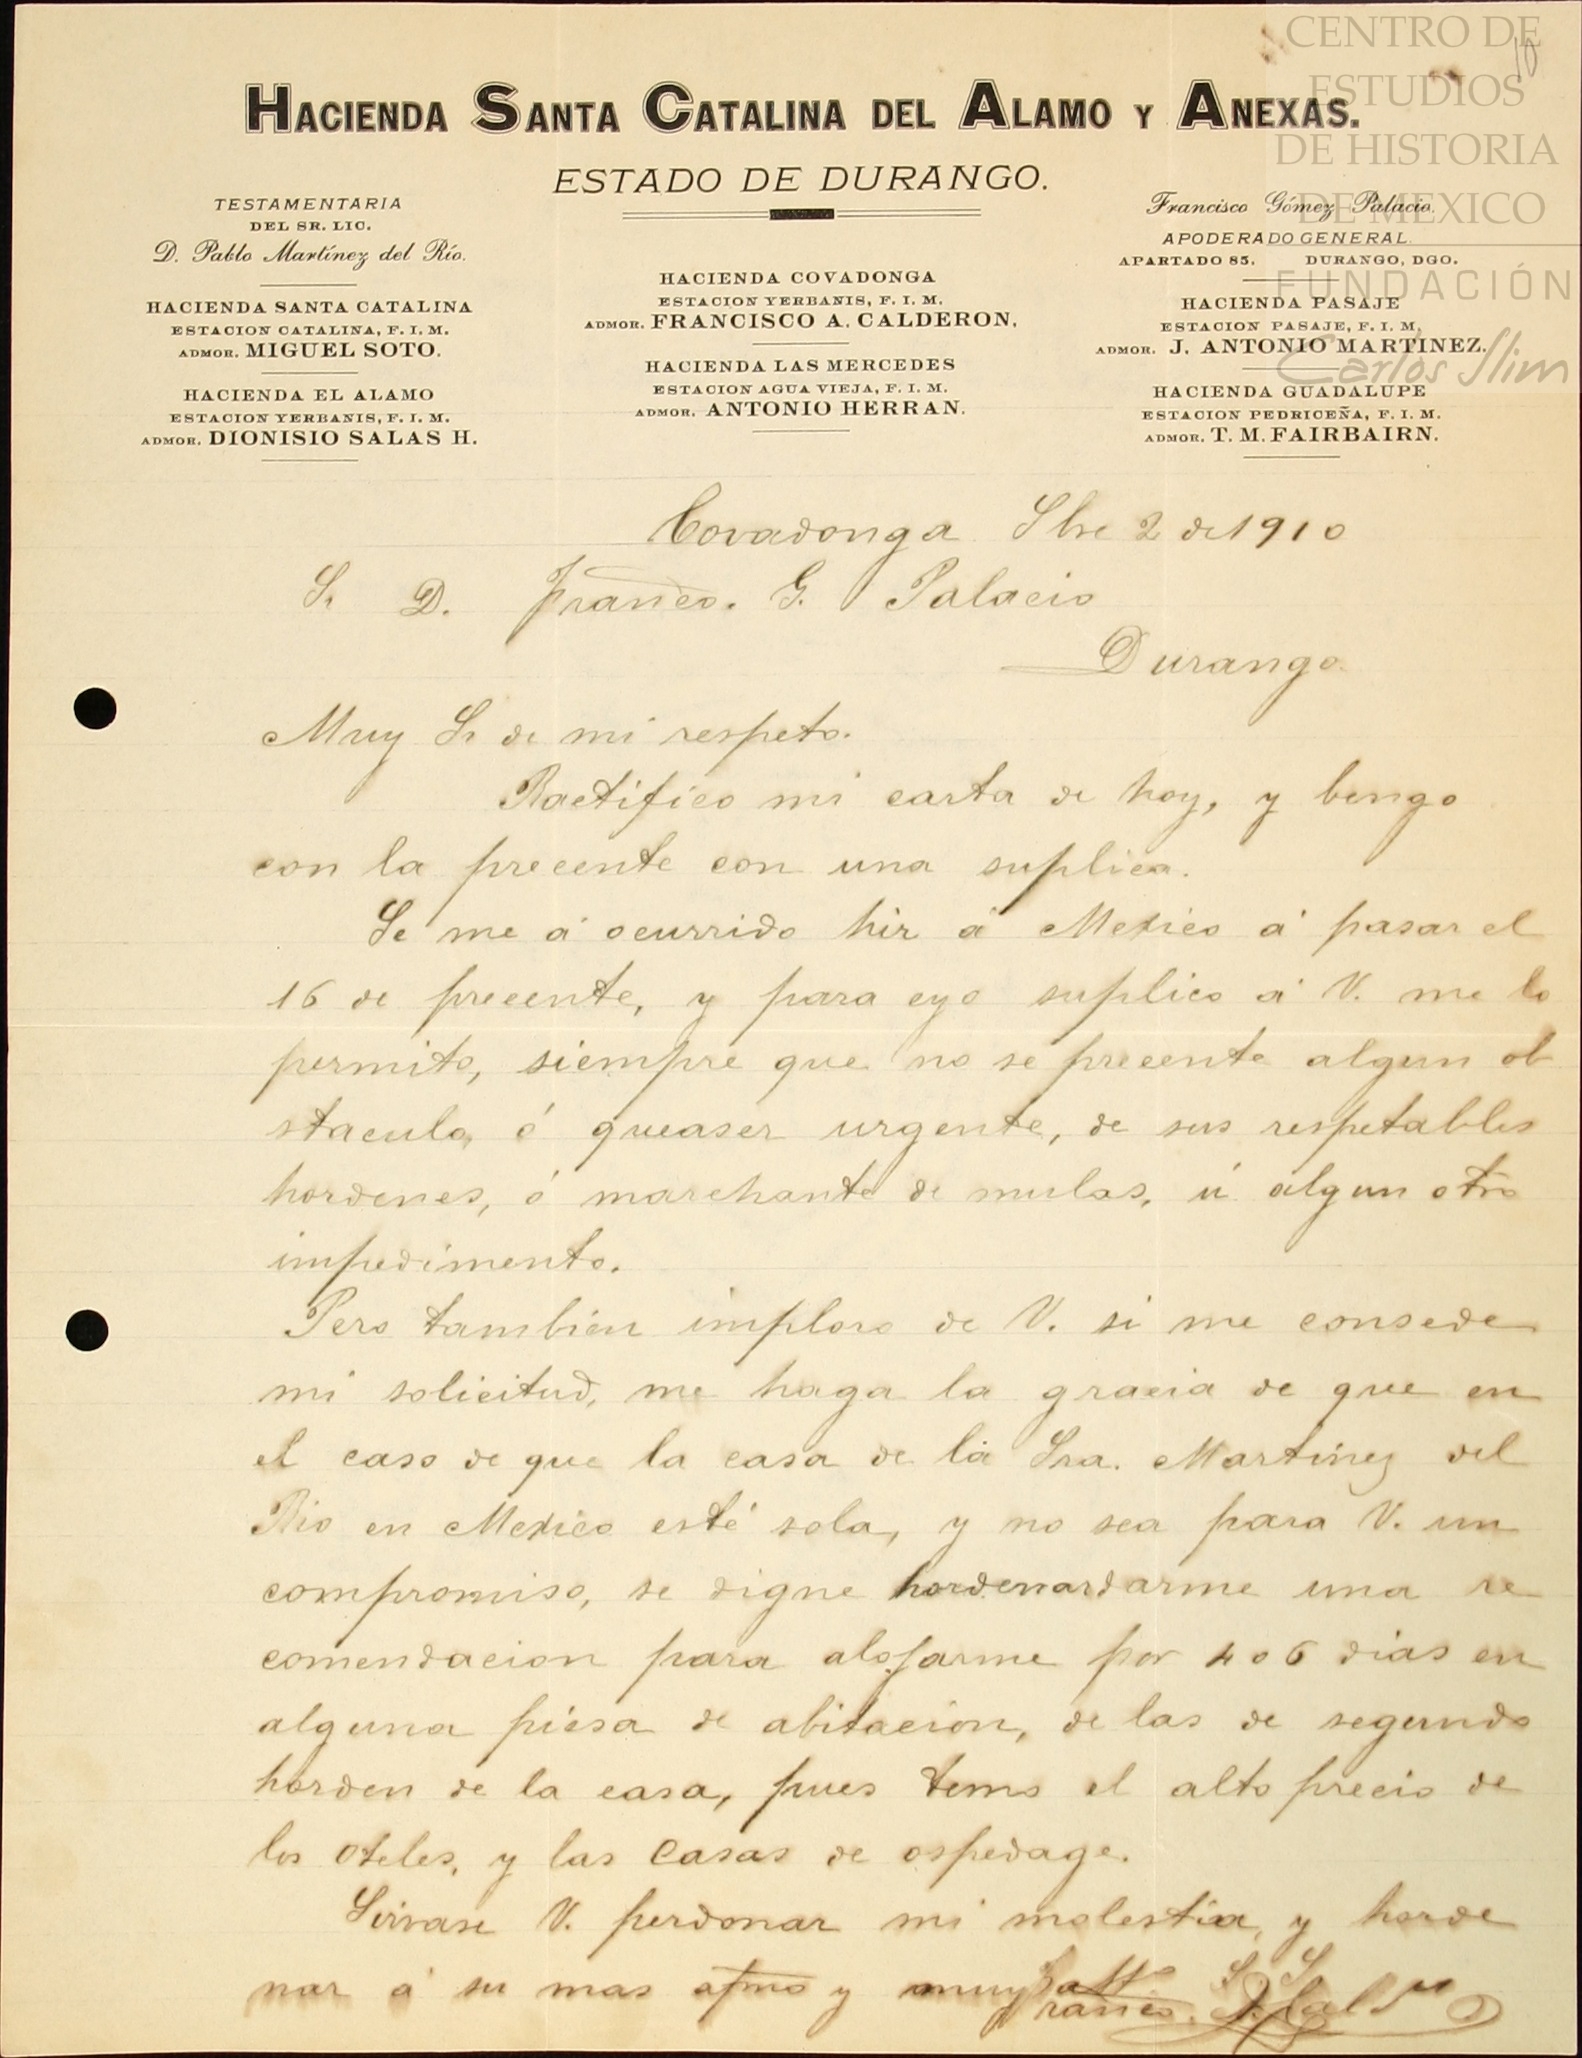 CENTRO DE
ESTUDIOS
DE HISTORIA
DE MEXICO
FUNDACIÓN
Carlos Slim
10
HACIENDA SANTA CATALINA DEL ALAMO Y ANEXAS.
ESTADO DE DURANGO.
TESTAMENTARIA
DEL SR. LIC.
D. Pablo Martínez del Río.
HACIENDA SANTA CATALINA
ESTACION CATALINA, F. I. M.
ADMOR. MIGUEL SOTO.
HACIENDA EL ALAMO
ESTACION YERBANIS, F. I. M.
ADMOR. DIONISIO SALAS H.
HACIENDA COVADONGA
ESTACION YERBANIS, F. I. M.
ADMOR. FRANCISCO A. CALDERON.
HACIENDA LAS MERCEDES
ESTACION AGUA VIEJA, F. I. M.
ADMOR. ANTONIO HERRAN.
Francisco Gómez Palacio.
APODERADO GENERAL.
APARTADO 85. DURANGO, DGO.
HACIENDA PASAJE
ESTACION PASAJE, F. I. M.
ADMOR. J. ANTONIO MARTINEZ.
HACIENDA GUADALUPE
ESTACION PEDRICEÑA, F. I. M.
ADMOR. T. M. FAIRBAIRN.
Covadonga Sbre 2 de 1910
Sr D. Franco. G. Palacio
Durango.
Muy Sr de mi respeto.
Ractifico mi carta de hoy, y bengo
con la precente con una suplica.
Se me á ocurrido hir á Mexico á pasar el
16 de precente, y para eyo suplico á V. me lo
permita, siempre que no se precente algun ob
staculo, ó queaser urgente, de sus respetables
hordenes, ó marchante de mulas, ú algun otro
impedimento.
Pero tambien imploro de V. si me consede
mi solicitud, me haga la gracia de que en
el caso de que la casa de la Sra. Martinez del
Rio en Mexico esté sola, y no sea para V. un
compromiso, se digne hordenardarme una re
comendacion para alojarme por 4 o 6 dias en
alguna piesa de abitacion, de las de segundo
horden de la casa, pues temo el alto precio de
los oteles, y las casas de ospedage.
Sirvase V. perdonar mi molestia, y horde
nar á su mas afmo y muy atto S. S.
Franco.